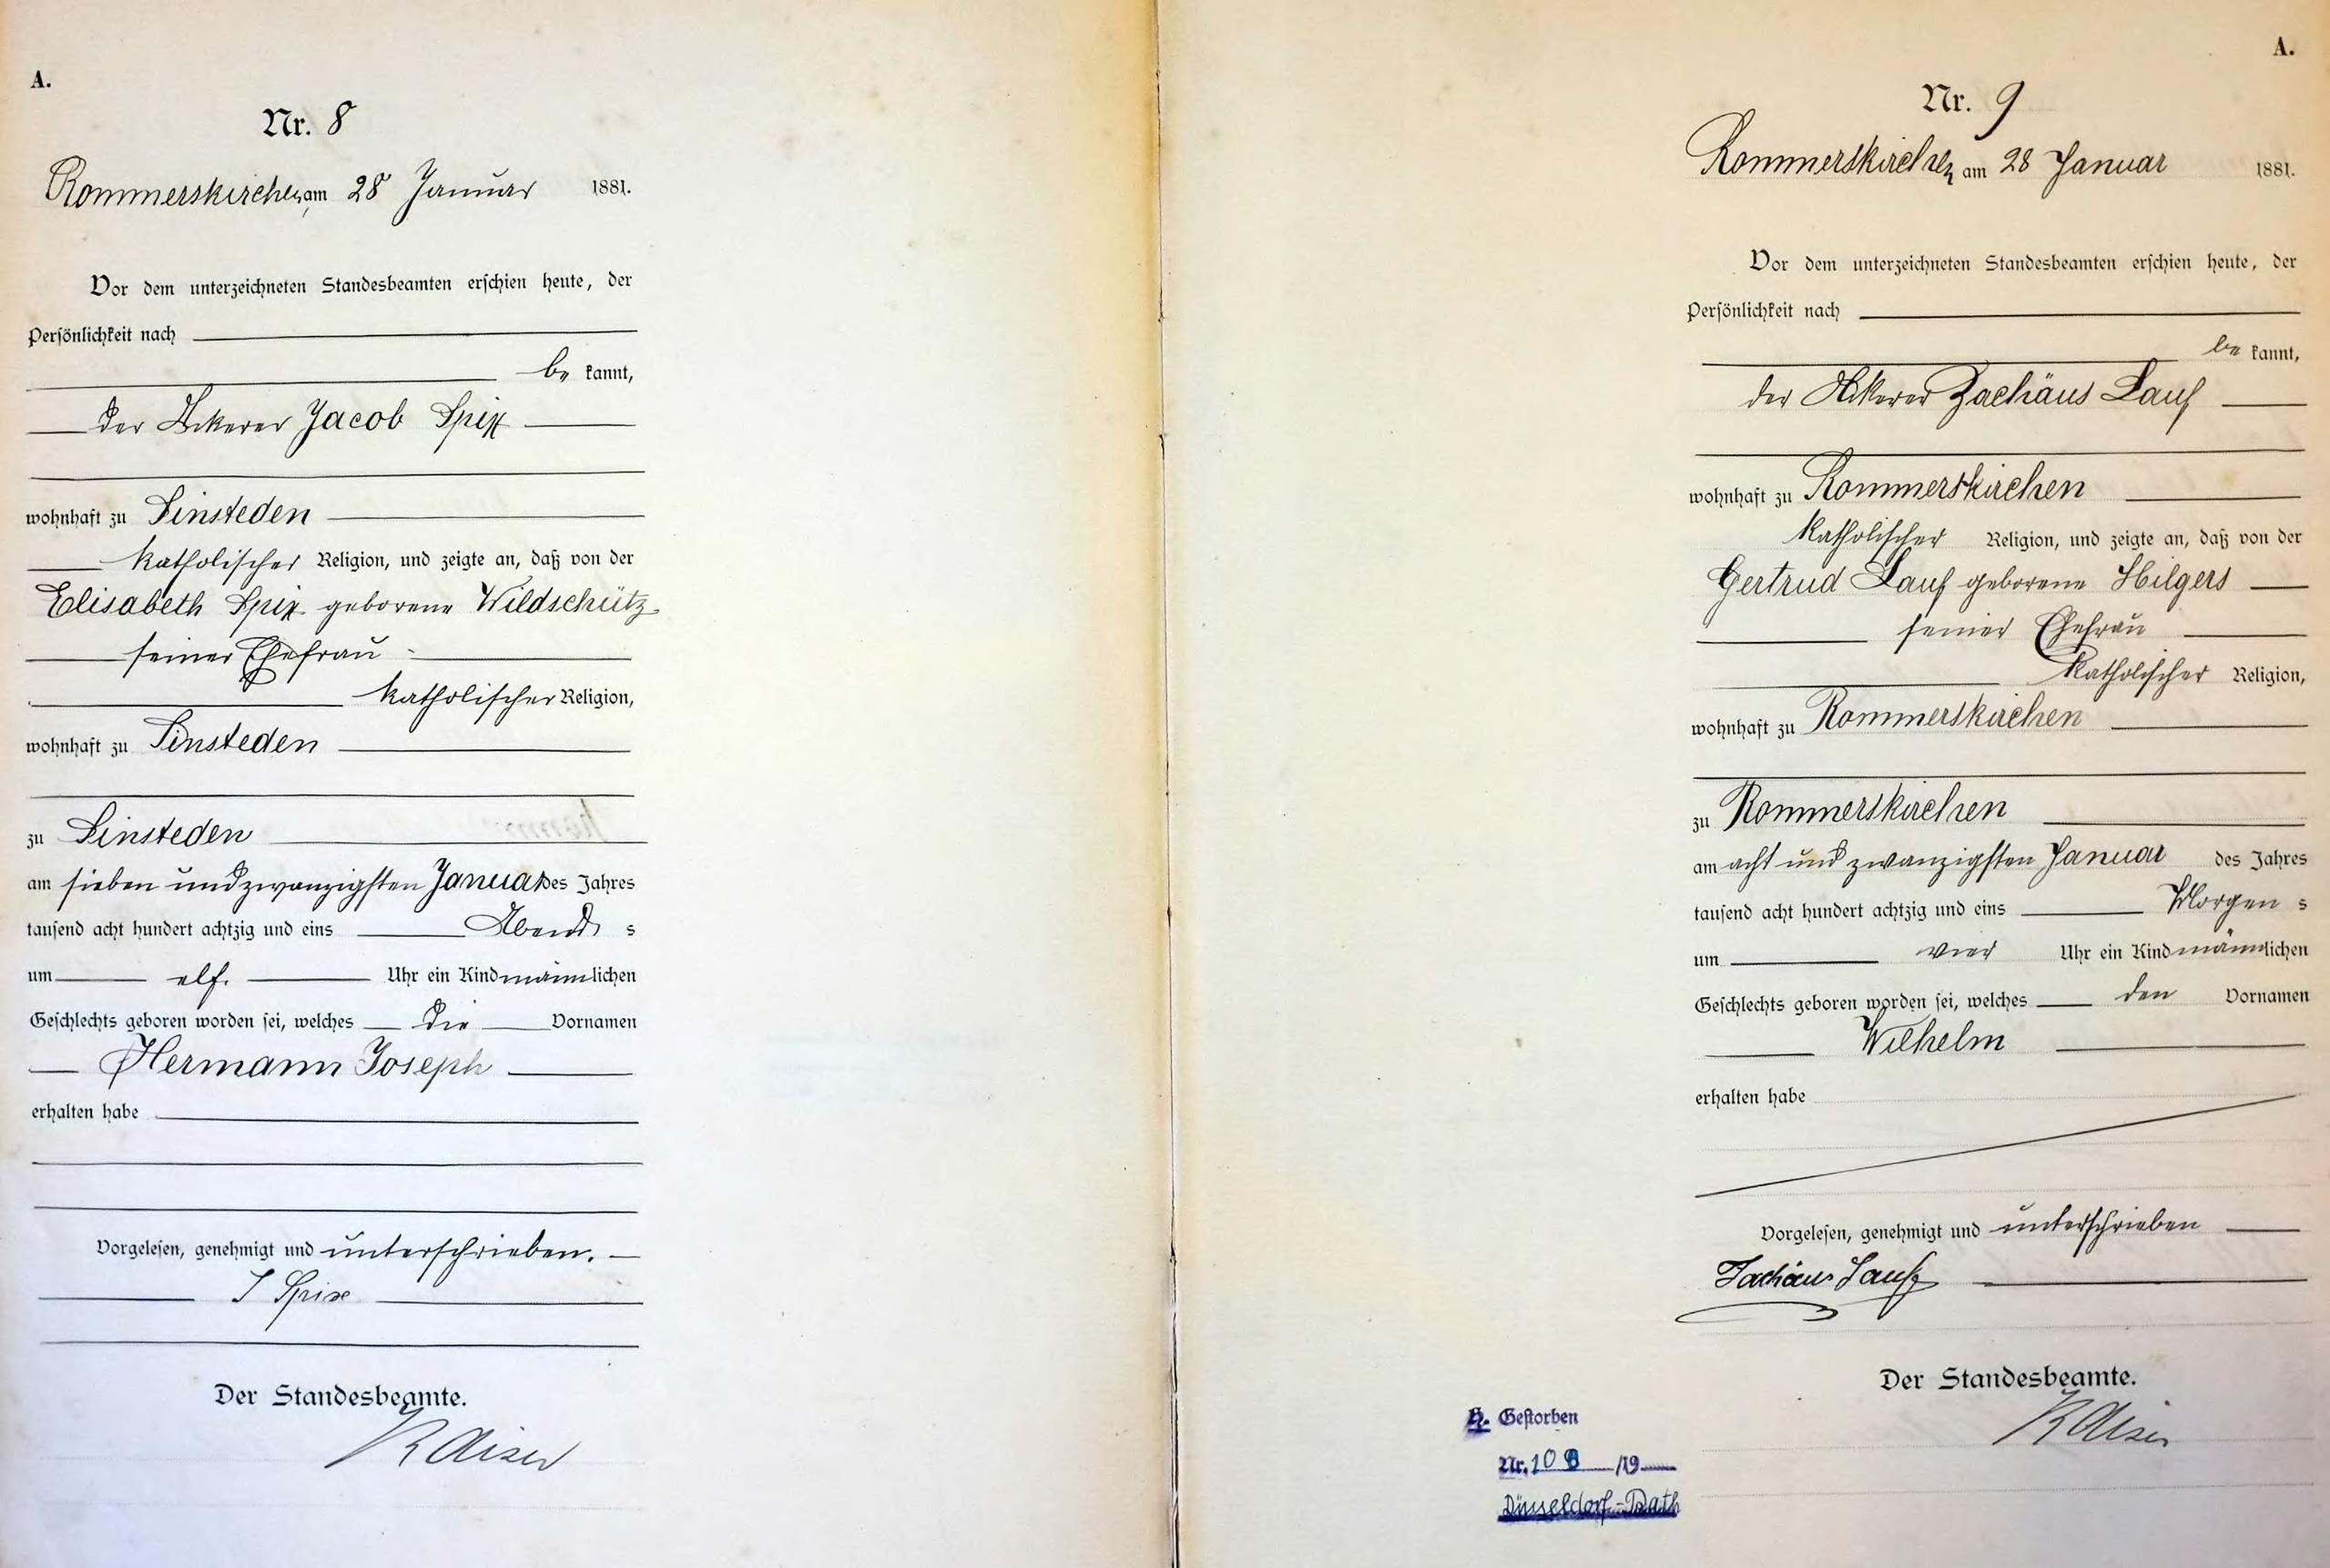 A.
Nr. 8
Rommerskirchen am 28 Januar 1881.
Vor dem unterzeichneten Standesbeamten erschien heute, der
Persönlichkeit nach
be kannt,
der Ackerer Jacob Spix
wohnhaft zu Sinsteden
katholischer Religion, und zeigte an, daß von der
Elisabeth Spix geborene Wildschütz
seiner Ehefrau
katholischer Religion,
wohnhaft zu Sinsteden
zu Sinsteden
am sieben und zwanzigsten Januar des Jahres
tausend acht hundert achtzig und eins Abends s
um elf. Uhr ein Kind männlichen
Geschlechts geboren worden sei, welches die Vornamen
Hermann Joseph
erhalten habe
Vorgelesen, genehmigt und unterschrieben.
J Spix
Der Standesbeamte.
Kaiser
A.
Nr. 9
Rommerskirchen am 28 Januar 1881.
Vor dem unterzeichneten Standesbeamten erschien heute, der
Persönlichkeit nach
be kannt,
der Ackerer Zachäus Lauf
wohnhaft zu Rommerskirchen
katholischer Religion, und zeigte an, daß von der
Gertrud Lauf geborene Hilgers
seiner Ehefrau
katholischer Religion,
wohnhaft zu Rommerskirchen
zu Rommerskirchen
am acht und zwanzigsten Januar des Jahres
tausend acht hundert achtzig und eins Morgen s
um vier Uhr ein Kind männlichen
Geschlechts geboren worden sei, welches den Vornamen
Wilhelm
erhalten habe
Vorgelesen, genehmigt und unterschrieben
Zachäus Lauf
Der Standesbeamte.
Kaiser
Gestorben
Nr. /19
Düsseldorf-Rath